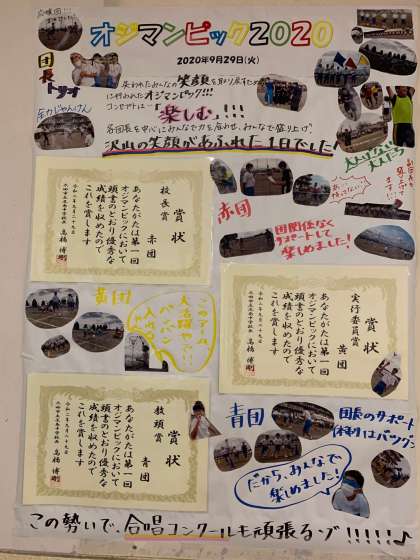 オジマンピック2020
2020年9月29日(火)
団長
トリオ
失われたみんなの笑顔を取り戻すために
行われたオジマンピック!!!
コンセプトは…「楽しむ」!!!
各団長を中心にみんなで力を合わせ、みんなで盛り上げ
沢山の笑顔があふれた1日でした!
全力じゃんけん
賞状
校長賞
赤団
あなたがたは第一回
オジマンピックにおいて
頭書のとおり優秀な
成績を収めたので
これを賞します
令和二年九月二十九日
赤団
団関係なく
サポートして
楽しめました!
黄団
このゲーム
大活躍やし!!
バンバン
入れてく
賞状
実行委員賞
黄団
あなたがたは第一回
オジマンピックにおいて
頭書のとおり優秀な
成績を収めたので
これを賞します
令和二年九月二十九日
賞状
教頭賞
青団
あなたがたは第一回
オジマンピックにおいて
頭書のとおり優秀な
成績を収めたので
これを賞します
令和二年九月二十九日
青団
団長のサポート
体制はバツグン
だから、みんなで
楽しめました!
この勢いで、合唱コンクールも頑張るゾ!!!!!♪